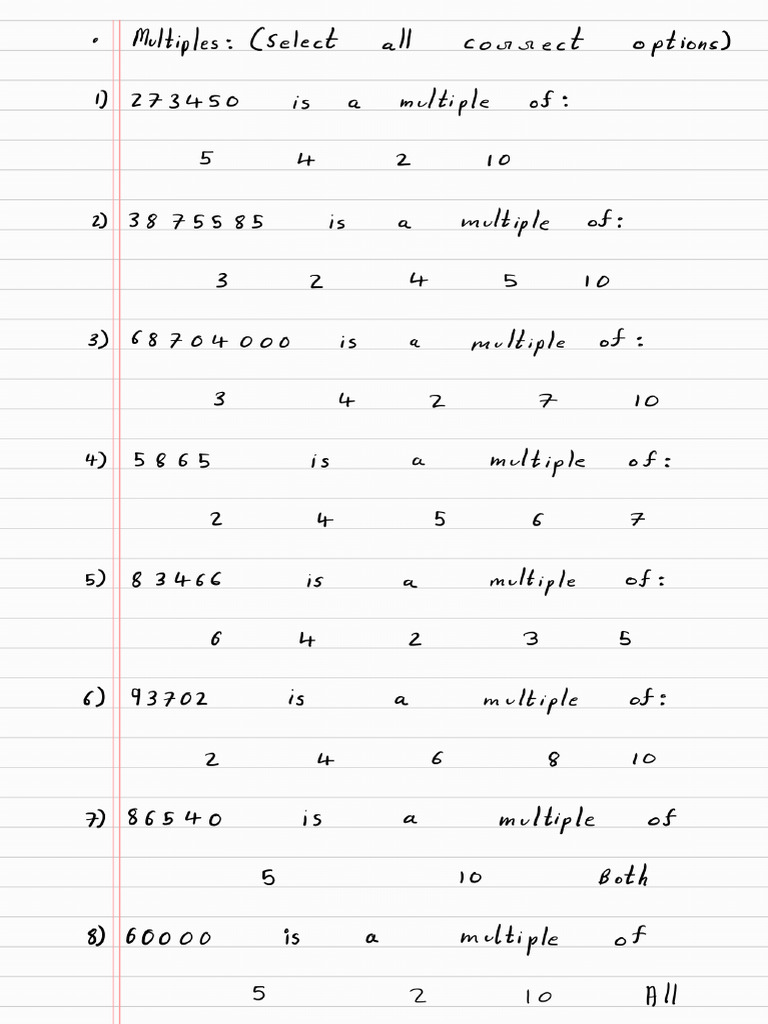 • Multiples: (Select all correct options)
1) 273450 is a multiple of:
5 4 2 10
2) 3875585 is a multiple of:
3 2 4 5 10
3) 68704000 is a multiple of:
3 4 2 7 10
4) 5865 is a multiple of:
2 4 5 6 7
5) 83466 is a multiple of:
6 4 2 3 5
6) 93702 is a multiple of:
2 4 6 8 10
7) 86540 is a multiple of
5 10 Both
8) 60000 is a multiple of
5 2 10 All